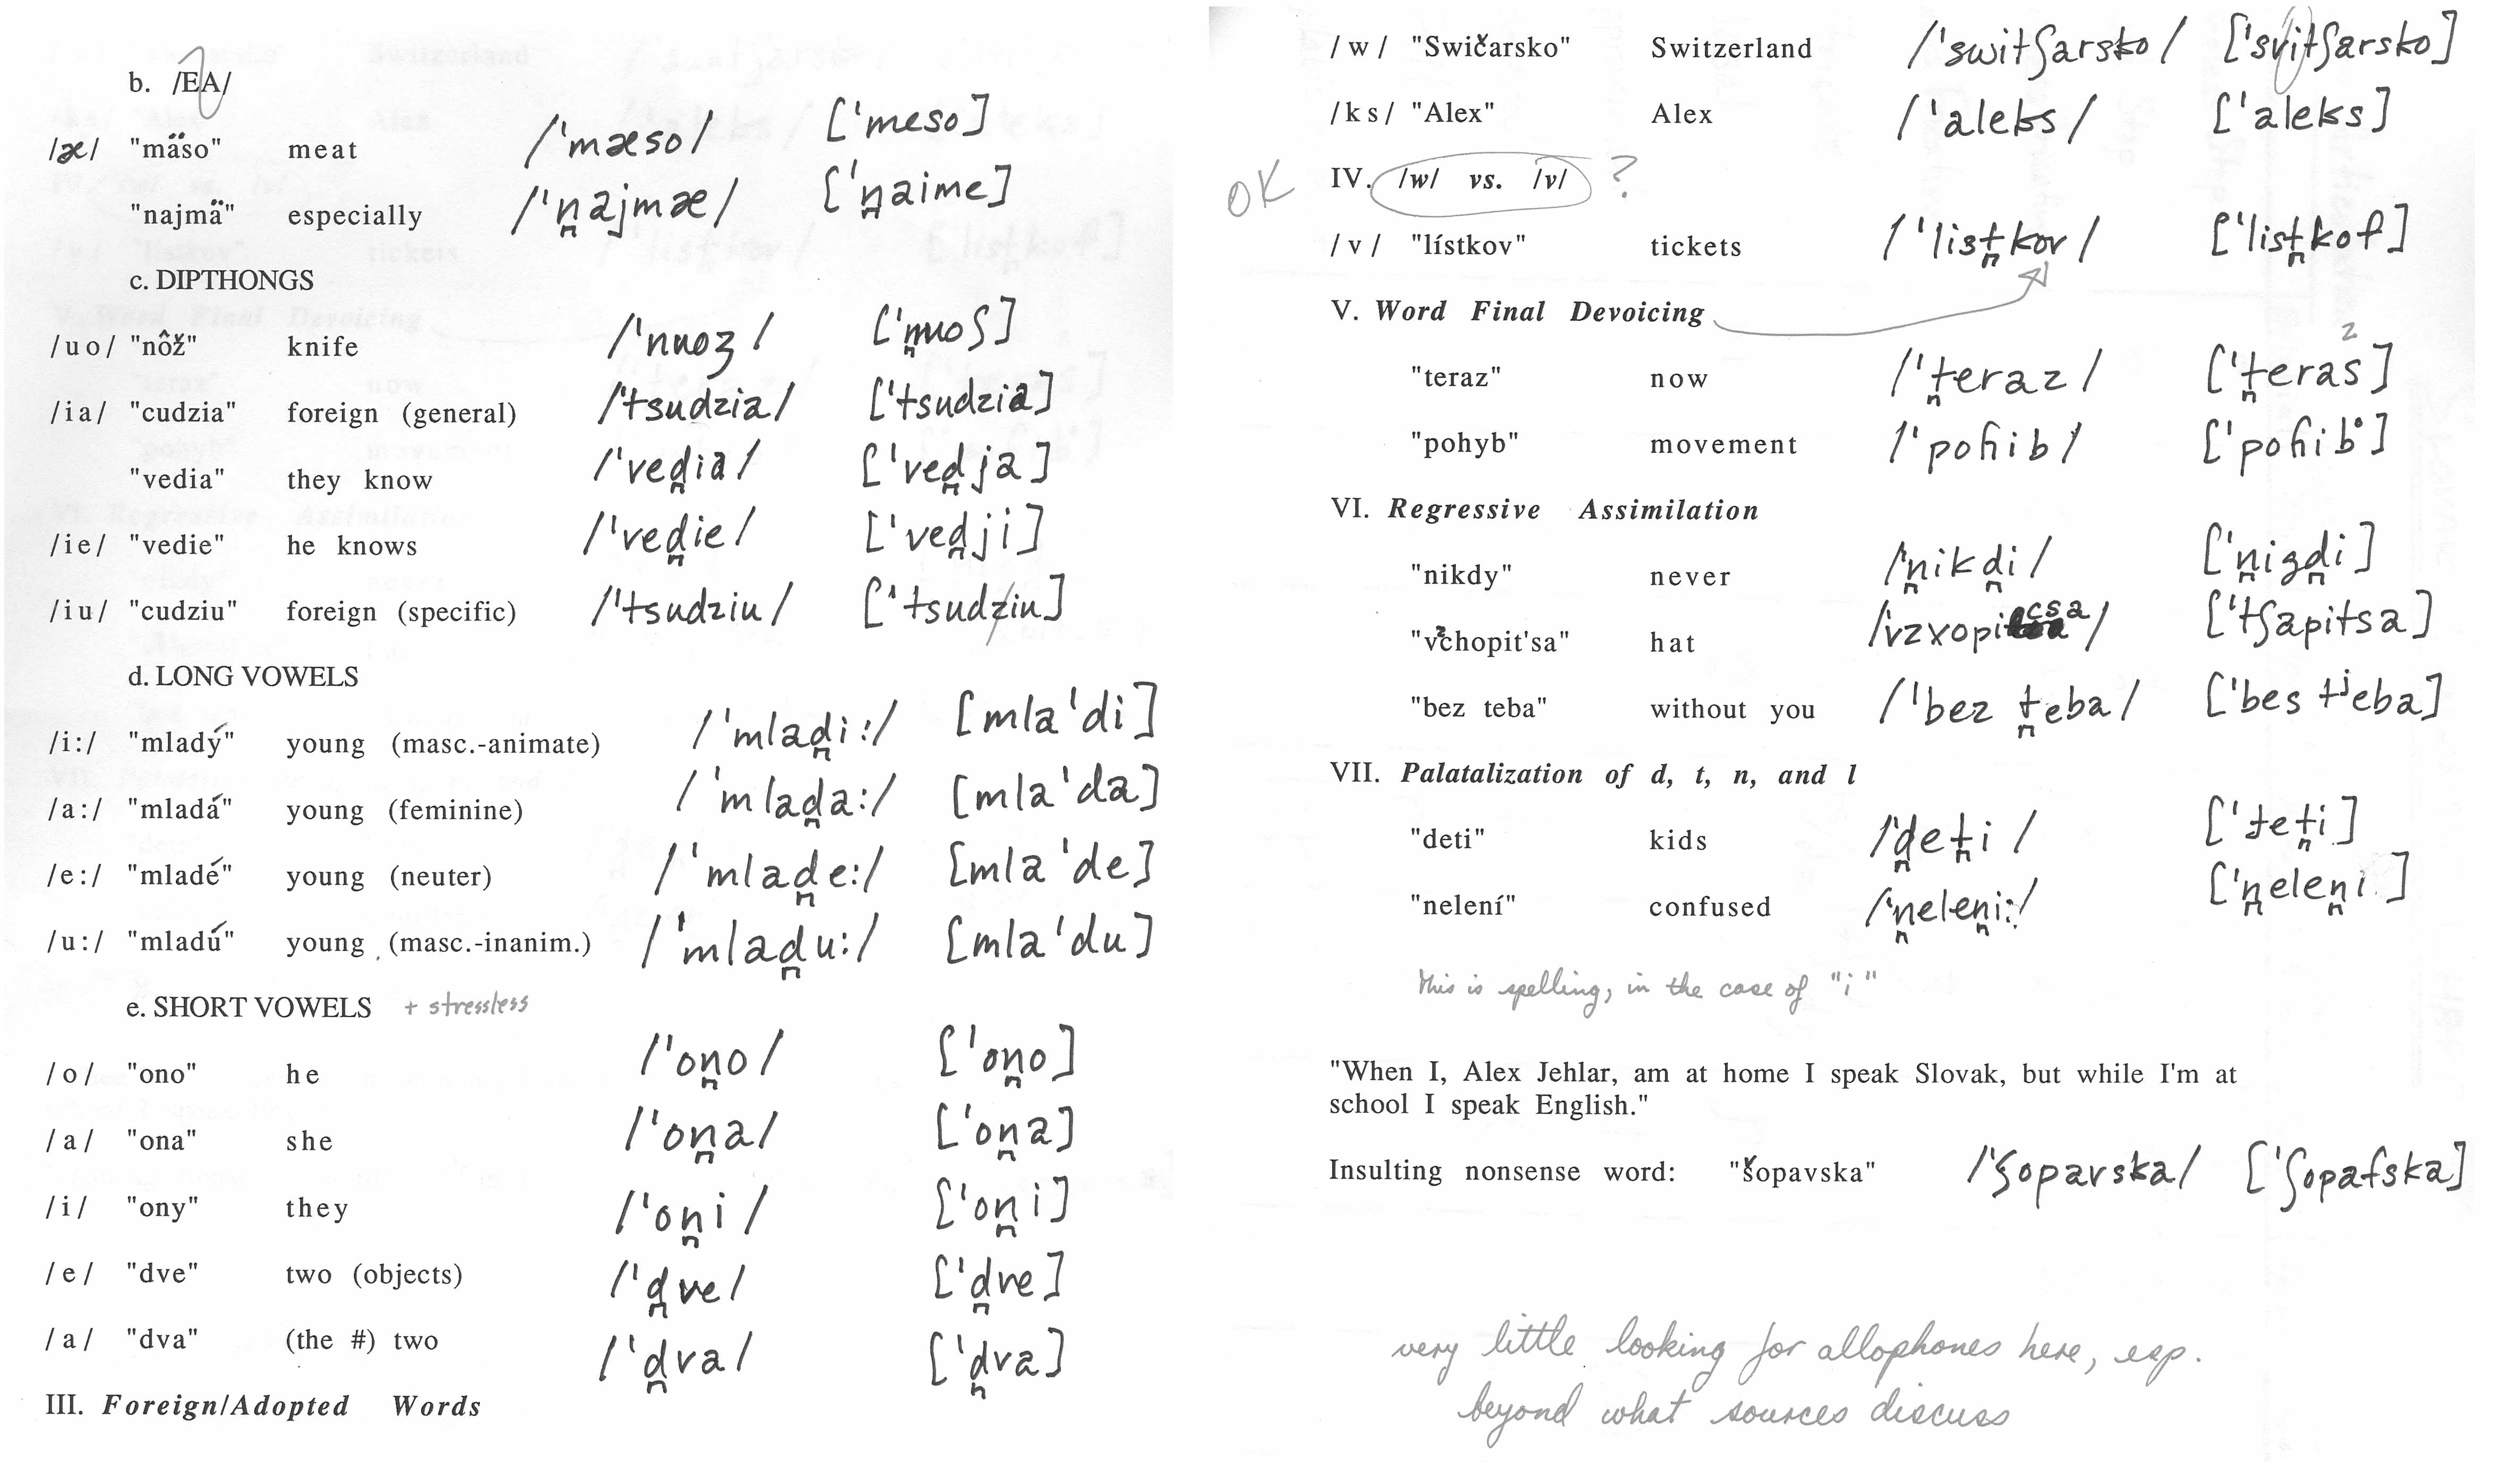 b. /EA/
/æ/ "mäso" meat /ˈmæso/ [ˈmeso]
"najmä" especially /ˈn̪ajmæ/ [ˈn̪aime]
c. DIPTHONGS
/uo/ "nôž" knife /ˈnuoʒ/ [ˈn̪uoʃ]
/ia/ "cudzia" foreign (general) /ˈtsudzia/ [ˈtsudzia]
"vedia" they know /ˈved̪ia/ [ˈved̪ja]
/ie/ "vedie" he knows /ˈved̪ie/ [ˈved̪ji]
/iu/ "cudziu" foreign (specific) /ˈtsudziu/ [ˈtsudziu]
d. LONG VOWELS
/i:/ "mladý" young (masc.-animate) /ˈmlad̪i:/ [mlaˈdi]
/a:/ "mladá" young (feminine) /ˈmlad̪a:/ [mlaˈda]
/e:/ "mladé" young (neuter) /ˈmlad̪e:/ [mlaˈde]
/u:/ "mladú" young (masc.-inanim.) /ˈmlad̪u:/ [mlaˈdu]
e. SHORT VOWELS + stressless
/o/ "ono" he /ˈon̪o/ [ˈon̪o]
/a/ "ona" she /ˈon̪a/ [ˈon̪a]
/i/ "ony" they /ˈon̪i/ [ˈon̪i]
/e/ "dve" two (objects) /ˈd̪ve/ [ˈd̪ve]
/a/ "dva" (the #) two /ˈd̪va/ [ˈd̪va]
III. Foreign/Adopted Words
/w/ "Swičarsko" Switzerland /ˈswitʃarsko/ [ˈsvitʃarsko]
/ks/ "Alex" Alex /ˈaleks/ [ˈaleks]
OK IV. /w/ vs. /v/ ?
/v/ "lístkov" tickets /ˈlist̪kov/ [ˈlist̪kof]
V. Word Final Devoicing
z
"teraz" now /ˈt̪eraz/ [ˈt̪eras]
"pohyb" movement /ˈpoɦib/ [ˈpoɦib̊]
VI. Regressive Assimilation
"nikdy" never /ˈn̪ikd̪i/ [ˈn̪igd̪i]
"vzchopit'sa" hat /ˈvzxopicsa/ [ˈtʃapitsa]
"bez teba" without you /ˈbez t̪eba/ [ˈbes tʲeba]
VII. Palatalization of d, t, n, and l
"deti" kids /ˈd̪et̪i/ [ˈtet̪i]
"nelení" confused /ˈn̪elen̪i:/ [ˈn̪elen̪i]
This is spelling, in the case of "i"
"When I, Alex Jehlar, am at home I speak Slovak, but while I'm at
school I speak English."
Insulting nonsense word: "šopavska" /ˈʃopavska/ [ˈʃopafska]
very little looking for allophones here, esp.
beyond what sources discuss